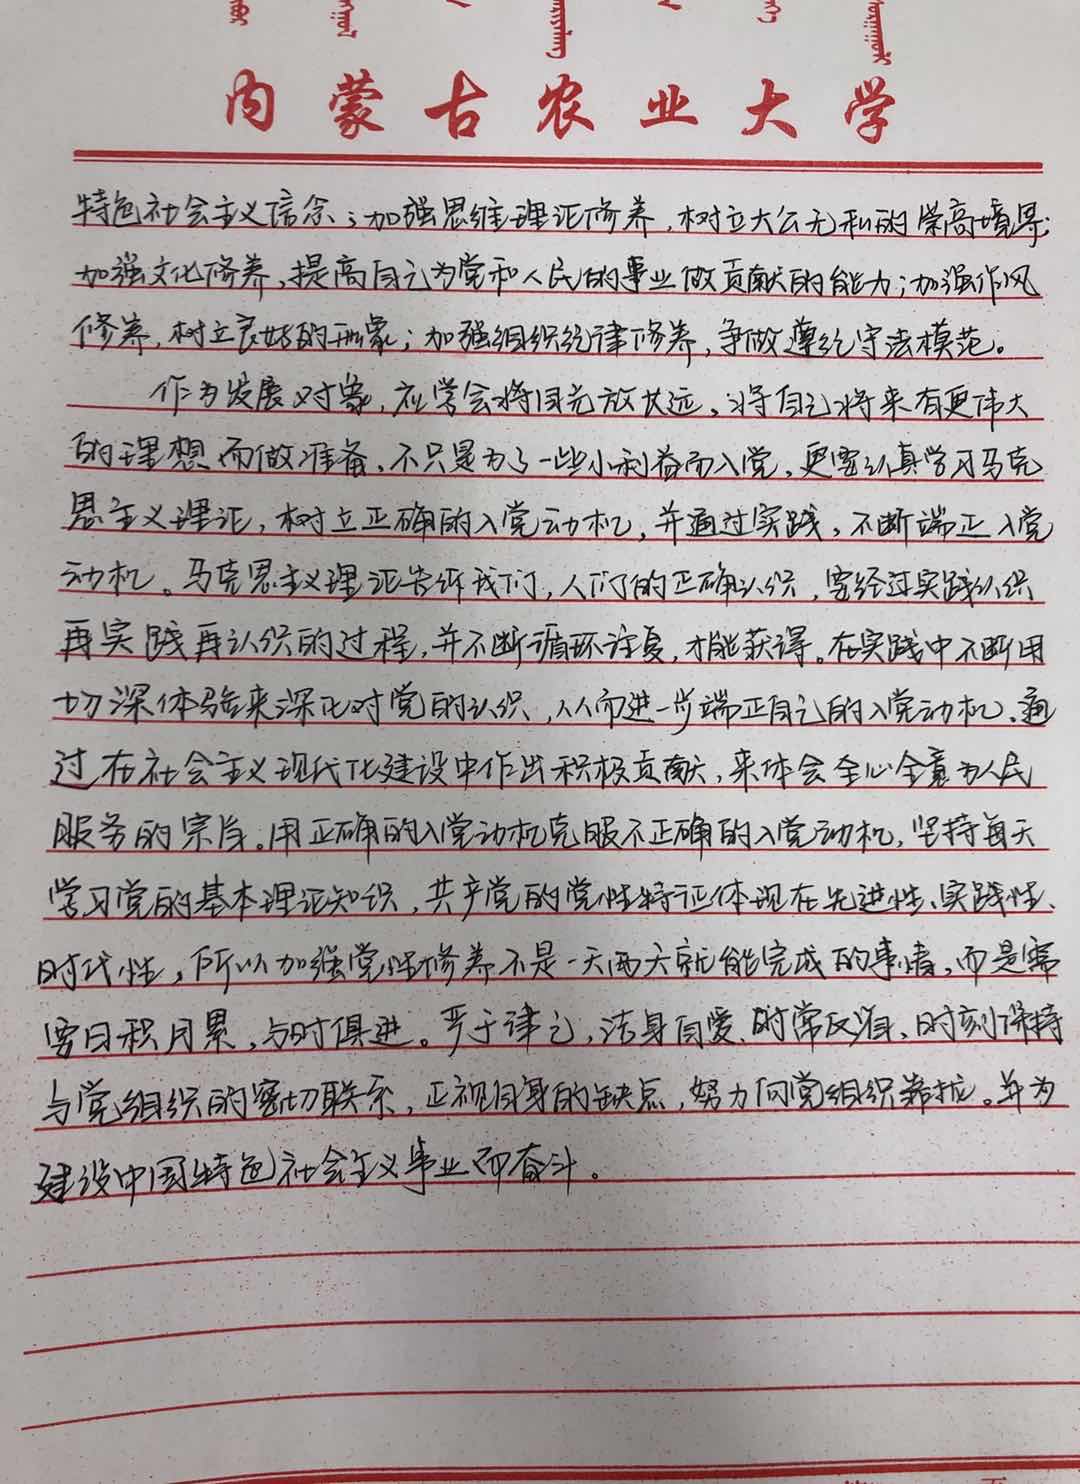 内蒙古农业大学
特色社会主义信念；加强思维理论修养，树立大公无私的崇高境界；
加强文化修养，提高自己为党和人民的事业做贡献的能力；加强作风
修养，树立良好的形象；加强组织纪律修养，争做遵纪守法模范。
作为发展对象，应学会将目光放长远，将自己将来有更伟大
的理想而做准备，不只是为了一些小利益而入党，更要认真学习马克
思主义理论，树立正确的入党动机，并通过实践，不断端正入党
动机。马克思主义理论告诉我们，人们的正确认识，要经过实践认识
再实践再认识的过程，并不断循环往复，才能获得。在实践中不断用
切深体验来深化对党的认识，从而进一步端正自己的入党动机。通
过在社会主义现代化建设中作出积极贡献，来体会全心全意为人民
服务的宗旨。用正确的入党动机克服不正确的入党动机，坚持每天
学习党的基本理论知识，共产党的党性特征体现在先进性、实践性、
时代性，所以加强党性修养不是一天两天就能完成的事情，而是需
要日积月累，与时俱进。严于律己，洁身自爱、时常反省、时刻保持
与党组织的密切联系，正视自身的缺点，努力向党组织靠拢。并为
建设中国特色社会主义事业而奋斗。